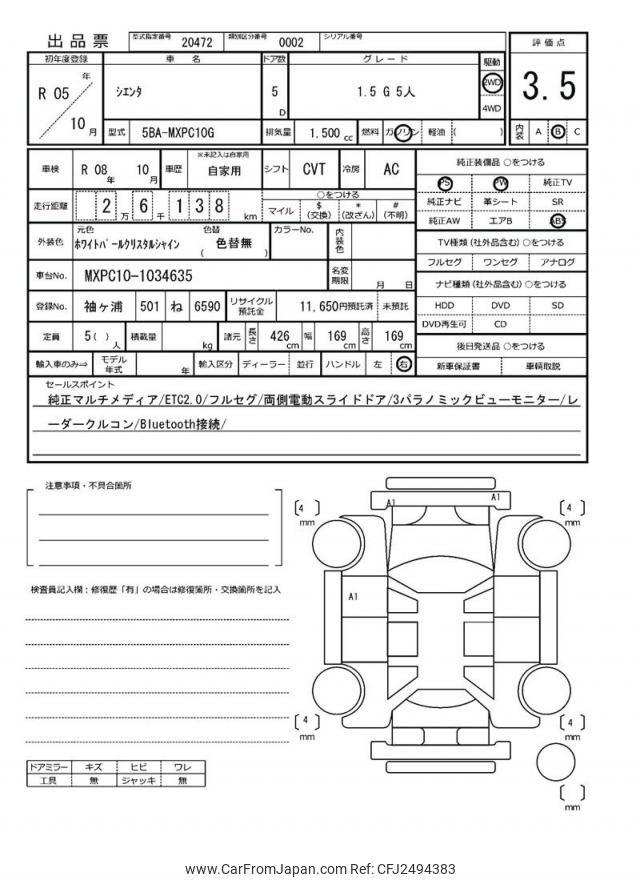 出品票
型式指定番号 20472 類別区分番号 0002 シリアル番号
初年度登録 車 名 ドア数 グレード 駆動 評価点
R 05 年 10 月
シエンタ
5 D
1.5 G 5人
2WD
4WD
3.5
型式 5BA-MXPC10G 排気量 1,500 cc 燃料 ガソリン 軽油 ( )
内装 A B C
車検 R 08 年 10 月 車歴 ※未記入は自家用 自家用 シフト CVT 冷房 AC
純正装備品 ○をつける
PS PW 純正TV
純正ナビ 革シート SR
純正AW エアB ABS
走行距離 2 万 6 千 1 3 8 km
○をつける
マイル $ (交換) * (改ざん) # (不明)
TV種類 (社外品含む) ○をつける
フルセグ ワンセグ アナログ
外装色 元色 ホワイトパールクリスタルシャイン 色替 ( 色替無 ) カラーNo. 内装色
車台No. MXPC10-1034635 名変期限 月 日
ナビ種類 (社外品含む) ○をつける
HDD DVD SD
DVD再生可 CD
登録No. 袖ヶ浦 501 ね 6590 リサイクル預託金 11,650円預託済 未預託
定員 5( ) 人 積載量 kg 諸元 長さ 426 cm 幅 169 cm 高さ 169 cm
後日発送品 ○をつける
新車保証書 車輌取説
輸入車のみ⇒ モデル年式 年 輸入区分 ディーラー 並行 ハンドル 左 右
セールスポイント
純正マルチメディア/ETC2.0/フルセグ/両側電動スライドドア/3パラノミックビューモニター/レ
ーダークルコン/Bluetooth接続/
注意事項・不具合箇所
検査員記入欄：修復歴「有」の場合は修復箇所・交換箇所を記入
A1 A1
[ 4 ] mm
[ 4 ] mm
A1
[ 4 ] mm
[ 4 ] mm
[ ] mm
ドアミラー キズ ヒビ ワレ
工具 無 ジャッキ 無
www.CarFromJapan.com Ref: CFJ2494383